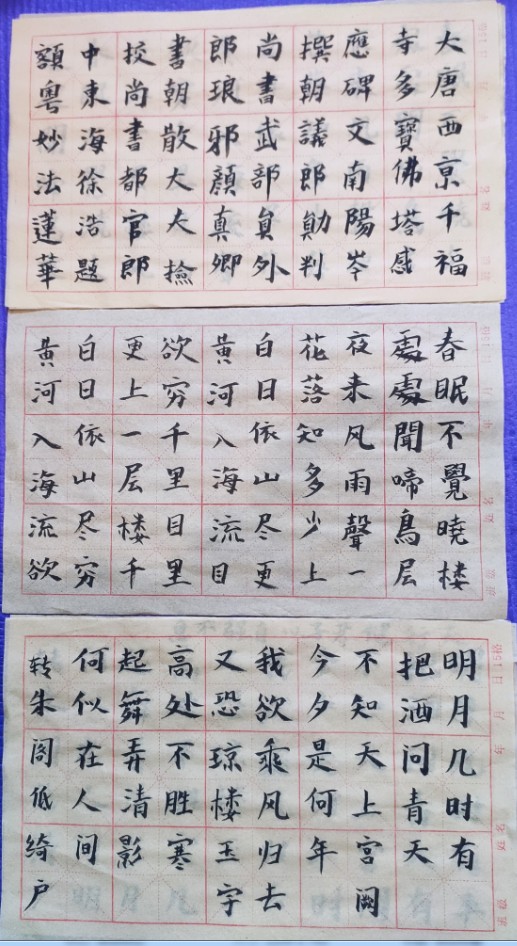 大唐西京千福
寺多寶佛塔感
應碑文南陽岑
撰朝議郎勛判
尚書武部員外
郎琅邪顏真卿
書朝散大夫撿
校尚書都官郎
中東海徐浩題
額粵妙法蓮華
春眠不覺曉楼
處處聞啼鳥层
夜来风雨聲一
花落知多少上
白日依山尽更
黄河入海流目
欲穷千里目里
更上一层楼千
白日依山尽穷
黄河入海流欲
15格 日 月 年 姓名 班级
明月几时有
把酒问青天
不知天上宫阙
今夕是何年
我欲乘风归去
又恐琼楼玉宇
高处不胜寒
起舞弄清影
何似在人间
转朱阁低绮户